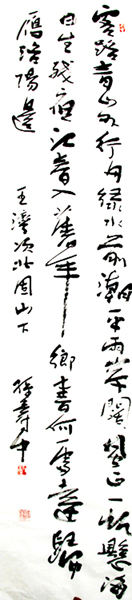 客路青山外行舟綠水前潮平兩岸闊風正一帆懸海
日生殘夜江春入舊年鄉書何處達歸
雁洛陽邊 王灣次北固山下